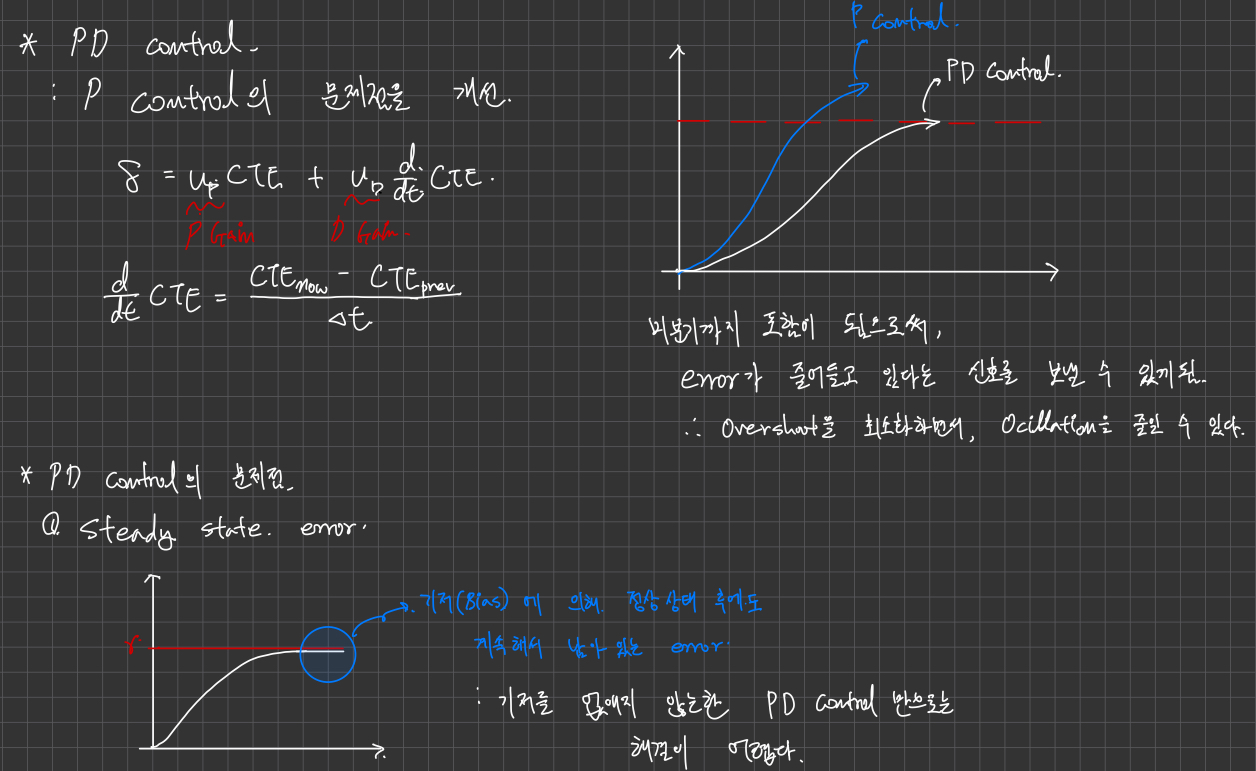 * PD control.
: P control의 문제점을 개선.
δ = u_p CTE + u_D d/dt CTE.
P Gain D Gain.
d/dt CTE = (CTE_now - CTE_prev) / Δt
P control.
PD control.
미분기까지 포함이 됨으로써,
error가 줄어들고 있다는 신호를 보낼 수 있게 됨.
∴ Overshoot을 최소화하면서, Ocillation을 줄일 수 있다.
* PD control의 문제점.
① Steady state. error.
r
기저(Bias)에 의해. 정상상태 후에도
지속해서 남아 있는 error.
: 기저를 없애지 않는한 PD control 만으로는
해결이 어렵다.